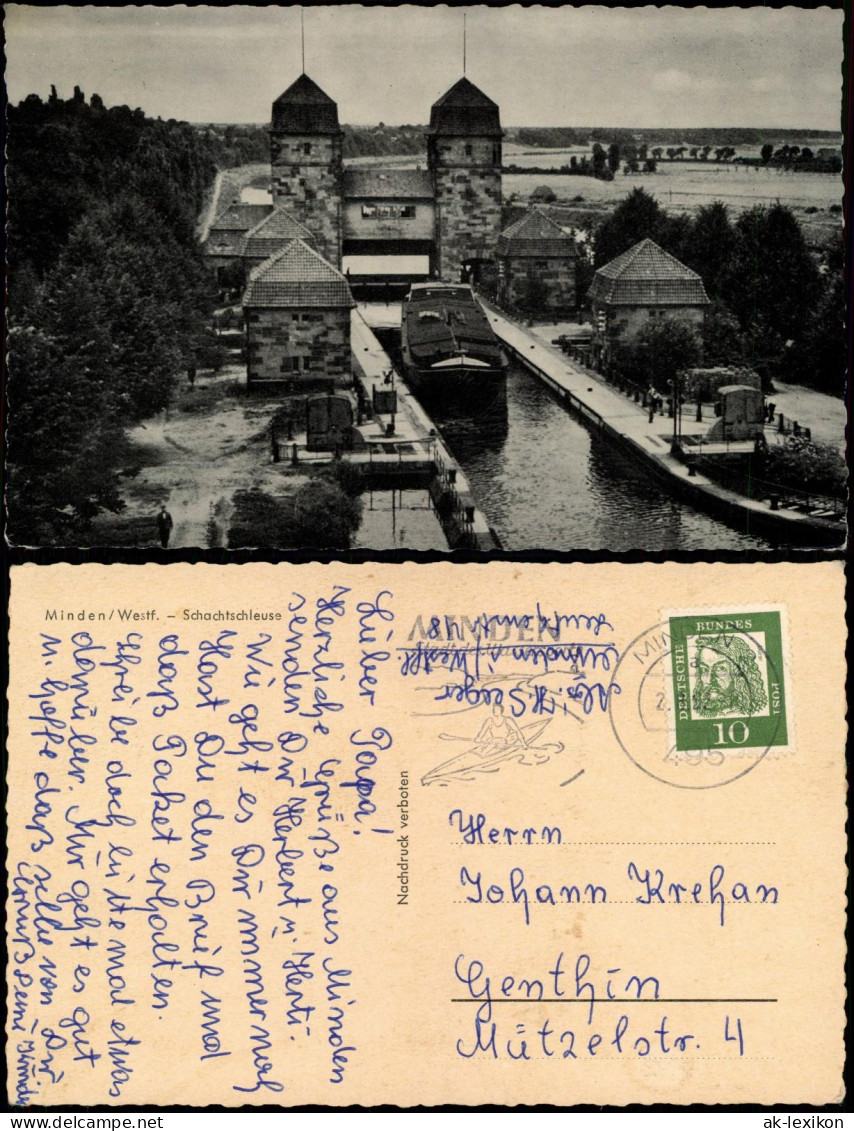 Minden/Westf. – Schachtschleuse
Lieber Papa!
Herzliche Grüße aus Minden
senden Dir Herbert u. Herti.
Wie geht es Dir immer noch
Hast Du den Brief und
daß Paket erhalten.
Schreibe doch bitte mal etwas
darüber. Mir geht es gut
u. hoffe daß selbe von Dir
Gruß
Nachdruck verboten
Abs: H. Seeger
Minden i/Westf.
48
MINDEN
MINDEN
a
495
DEUTSCHE
BUNDES
POST
10
Herrn
Johann Krehan
Genthin
Mützelstr. 4
ak-lexikon
ak-lexikon.com